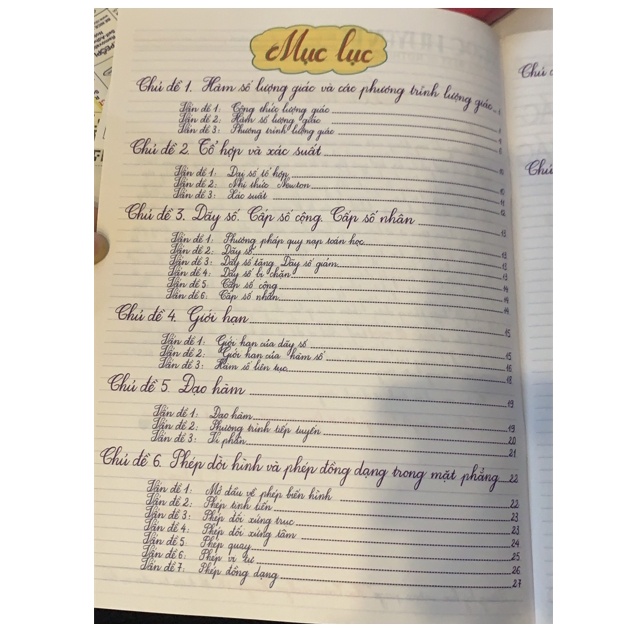 Mục lục
Chủ đề 1. Hàm số lượng giác và các phương trình lượng giác
Vấn đề 1: Công thức lượng giác
Vấn đề 2: Hàm số lượng giác
Vấn đề 3: Phương trình lượng giác
Chủ đề 2. Tổ hợp và xác suất
Vấn đề 1: Dãy số tổ hợp
Vấn đề 2: Nhị thức Newton 11
Vấn đề 3: Xác suất 12
Chủ đề 3. Dãy số. Cấp số cộng. Cấp số nhân
Vấn đề 1: Phương pháp quy nạp toán học
Vấn đề 2: Dãy số 13
Vấn đề 3: Dãy số tăng. Dãy số giảm 13
Vấn đề 4: Dãy số bị chặn 13
Vấn đề 5: Cấp số cộng 14
Vấn đề 6: Cấp số nhân 14
Chủ đề 4. Giới hạn 15
Vấn đề 1: Giới hạn của dãy số 15
Vấn đề 2: Giới hạn của hàm số 16
Vấn đề 3: Hàm số liên tục 18
Chủ đề 5. Đạo hàm 19
Vấn đề 1: Đạo hàm 19
Vấn đề 2: Phương trình tiếp tuyến 20
Vấn đề 3: Vi phân 21
Chủ đề 6. Phép dời hình và phép đồng dạng trong mặt phẳng 22
Vấn đề 1: Mở đầu về phép biến hình 22
Vấn đề 2: Phép tịnh tiến 23
Vấn đề 3: Phép đối xứng trục 23
Vấn đề 4: Phép đối xứng tâm 24
Vấn đề 5: Phép quay 25
Vấn đề 6: Phép vị tự 26
Vấn đề 7: Phép đồng dạng 27
Chủ đ
Chủ